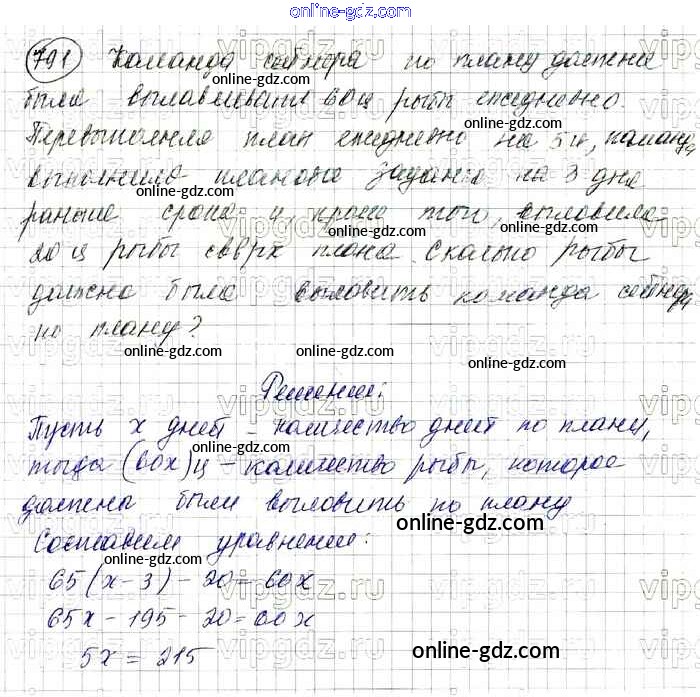 online-gdz.com
791 Команда сейнера по плану должна
online-gdz.com
была вылавливать 60 ц рыбы ежедневно.
online-gdz.com
Перевыполняя план ежедневно на 5 ц, команда
online-gdz.com
выполнила плановое задание на 3 дня
online-gdz.com
раньше срока и, кроме того, выловила
20 ц рыбы сверх плана. Сколько рыбы
online-gdz.com
должна была выловить команда
online-gdz.com
по плану?
online-gdz.com
online-gdz.com
Решение:
online-gdz.com
Пусть x дней – количество дней по плану,
тогда (60x) ц – количество рыбы, которое
online-gdz.com
должны были выловить по плану
online-gdz.com
Составим уравнение:
online-gdz.com
65(x-3) - 20 = 60x
65x - 195 - 20 = 60x
online-gdz.com
5x = 215
online-gdz.com